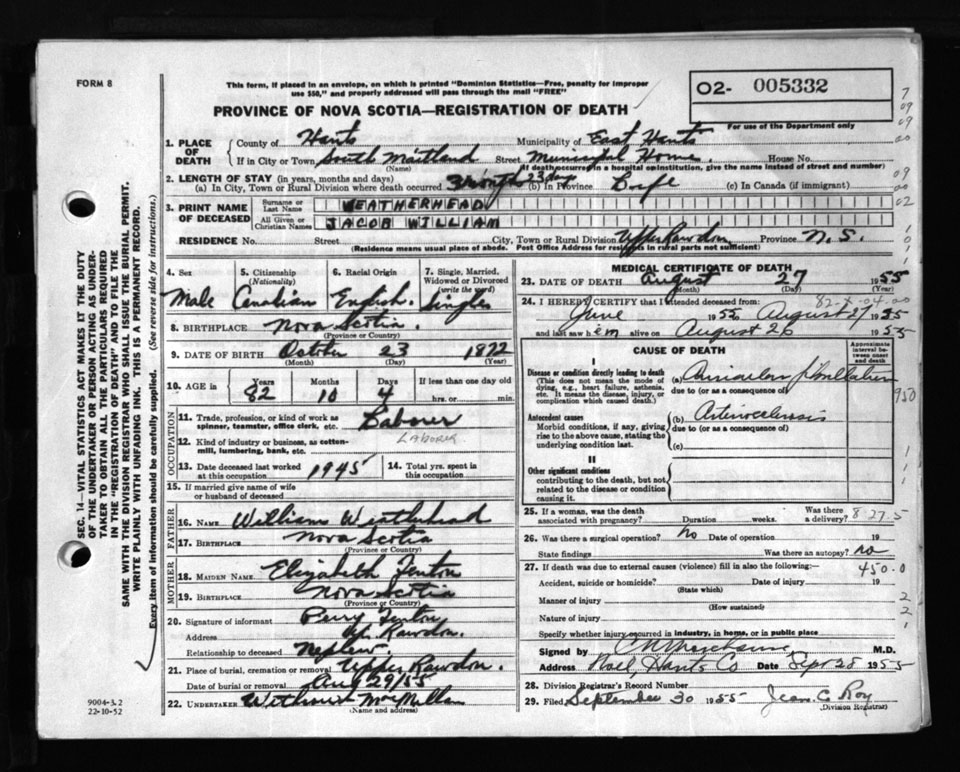 FORM 8
This form, if placed in an envelope, on which is printed "Dominion Statistics—Free, penalty for improper
use $50," and properly addressed will pass through the mail "FREE"
PROVINCE OF NOVA SCOTIA—REGISTRATION OF DEATH
02- 005332
For use of the Department only
1. PLACE OF DEATH
County of Hants Municipality of East Hants
If in City or Town South Maitland Street Municipal Home. House No.
(Name) (If death occurred in a hospital or institution, give the name instead of street and number)
2. LENGTH OF STAY (in years, months and days)
(a) In City, Town or Rural Division where death occurred 3 months 23 days (b) In Province Life (c) In Canada (if immigrant)
3. PRINT NAME OF DECEASED
Surname or Last Name WEATHERHEAD
All Given or Christian Names JACOB WILLIAM
RESIDENCE No. Street City, Town or Rural Division Upper Rawdon Province N.S.
(Residence means usual place of abode. Post Office Address for residents in rural parts not sufficient)
4. Sex
Male
5. Citizenship
(Nationality)
Canadian
6. Racial Origin
English.
7. Single, Married, Widowed or Divorced
(write the word)
Single
8. BIRTHPLACE Nova Scotia.
(Province or Country)
9. DATE OF BIRTH October 23 1872
(Month) (Day) (Year)
10. AGE in
Years Months Days If less than one day old
82 10 4 hrs. or min.
OCCUPATION
11. Trade, profession, or kind of work as
spinner, teamster, office clerk, etc. Laborer
LABORER
12. Kind of industry or business, as cotton-
mill, lumbering, bank, etc.
13. Date deceased last worked
at this occupation 1945
14. Total yrs. spent in
this occupation
15. If married give name of wife
or husband of deceased
FATHER
16. NAME William Weatherhead
17. BIRTHPLACE Nova Scotia
(Province or Country)
MOTHER
18. MAIDEN NAME Elizabeth Fenton
19. BIRTHPLACE Nova Scotia
(Province or Country)
20. Signature of informant Perry Fenton
Address Up. Rawdon.
Relationship to deceased Nephew
21. Place of burial, cremation or removal Upper Rawdon.
Date of burial or removal Aug 29/55
22. UNDERTAKER MacMillan
(Name and address)
MEDICAL CERTIFICATE OF DEATH
23. DATE OF DEATH August 27 1955
(Month) (Day) (Year)
82-X-04.00
24. I HEREBY CERTIFY that I attended deceased from:
June 1952 August 27 1955
and last saw him alive on August 26 1955
CAUSE OF DEATH
Approximate interval between onset and death
I
Disease or condition directly leading to death
(This does not mean the mode of
dying, e.g., heart failure, asthenia,
etc. It means the disease, injury, or
complication which caused death.)
(a)
due to (or as a consequence of)
Antecedent causes
Morbid conditions, if any, giving
rise to the above cause, stating the
underlying condition last.
(b)
due to (or as a consequence of)
(c)
II
Other significant conditions
contributing to the death, but not
related to the disease or condition
causing it.
25. If a woman, was the death
associated with pregnancy? Duration weeks. Was there a delivery?
827.5
26. Was there a surgical operation? No Date of operation 19
State findings Was there an autopsy? no
27. If death was due to external causes (violence) fill in also the following:
450.0
Accident, suicide or homicide? Date of injury 19
(State which)
Manner of injury
(How sustained)
Nature of injury
Specify whether injury occurred in industry, in home, or in public place
Signed by M.D.
Address Noel, Hants Co Date Sept 28 1955
28. Division Registrar's Record Number
29. Filed September 30 1955 Jean C. Roy
(Division Registrar)
SEC. 14—VITAL STATISTICS ACT MAKES IT THE DUTY
OF THE UNDERTAKER OR PERSON ACTING AS UNDER-
TAKER TO OBTAIN ALL THE PARTICULARS REQUIRED
IN THE "REGISTRATION OF DEATH" AND TO FILE THE
SAME WITH THE DIVISION REGISTRAR WHO SHALL ISSUE THE BURIAL PERMIT.
WRITE PLAINLY WITH UNFADING INK. THIS IS A PERMANENT RECORD.
Every item of information should be carefully supplied. (See reverse side for instructions.)
9004-3.2
22-10-52